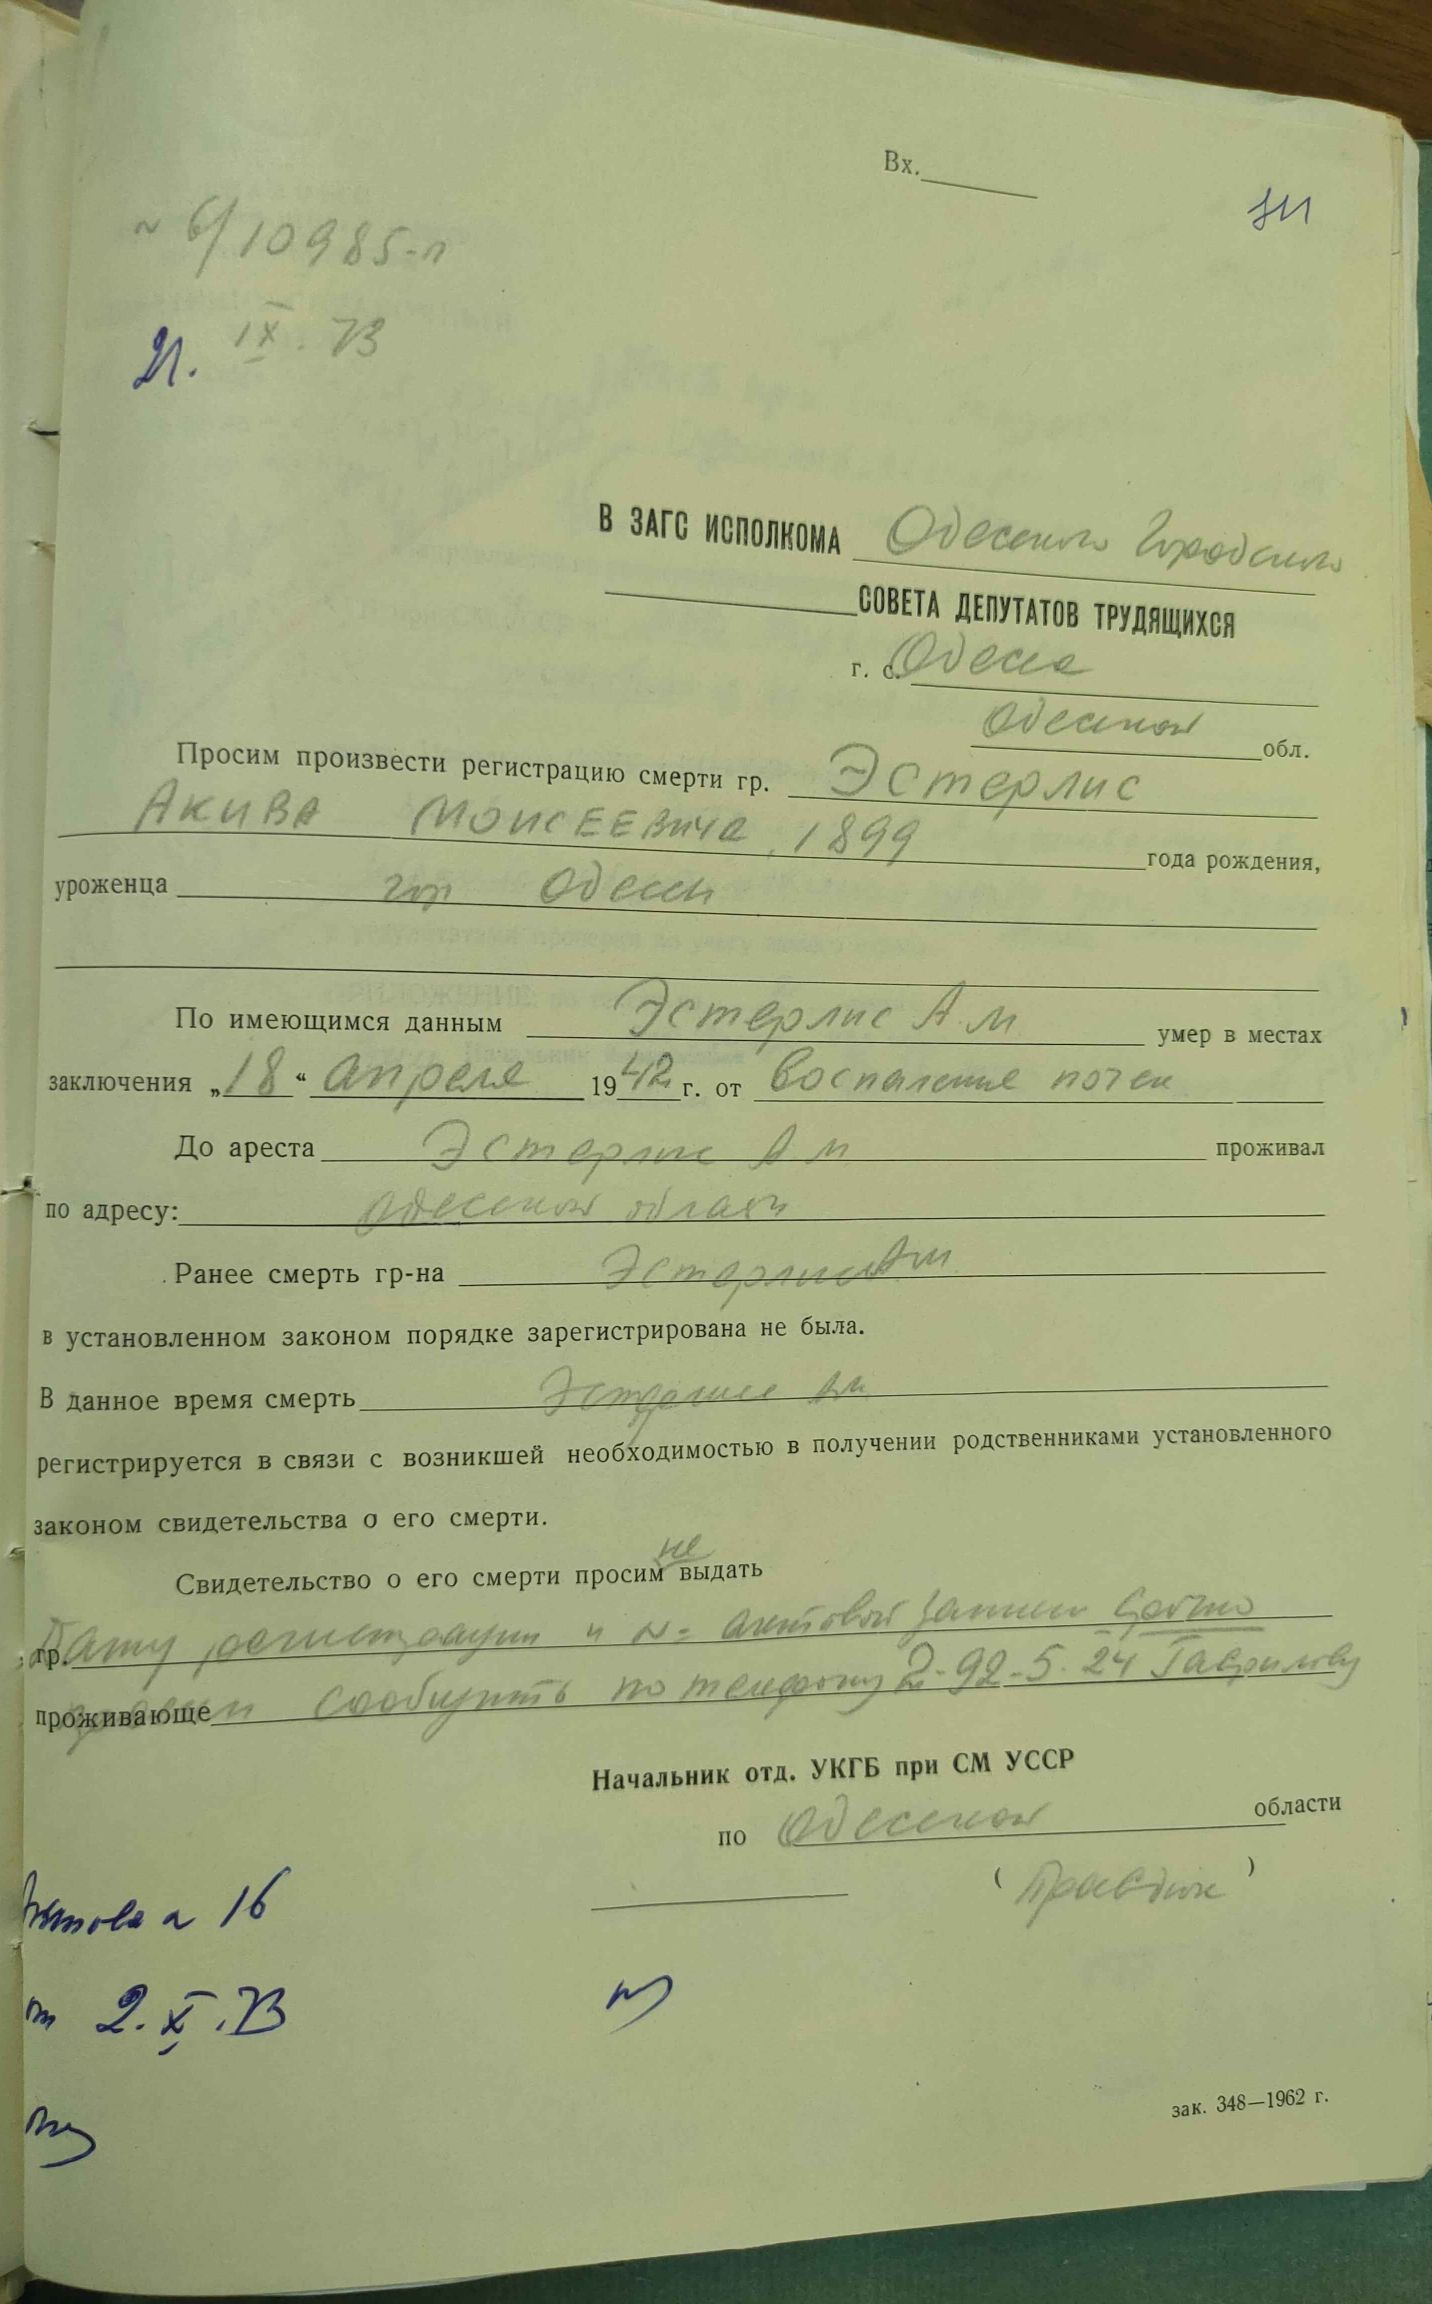 Вх.
№ 6/10985-л
21. IX. 73
В ЗАГС ИСПОЛКОМА Одесского Городского
СОВЕТА ДЕПУТАТОВ ТРУДЯЩИХСЯ
г. с. Одесса
Одесской обл.
Просим произвести регистрацию смерти гр. Эстерлис
Акива Моисеевича, 1899 года рождения,
уроженца гор Одессы
По имеющимся данным Эстерлис А.М умер в местах
заключения „18“ апреля 1942 г. от воспаление почек
До ареста Эстерлис А М проживал
по адресу: Одесской области
Ранее смерть гр-на Эстерлис А М
в установленном законом порядке зарегистрирована не была.
В данное время смерть Эстерлис АМ
регистрируется в связи с возникшей необходимостью в получении родственниками установленного
законом свидетельства о его смерти.
Свидетельство о его смерти просим не выдать
гр. Дату регистрации и №= актовой записи срочно
проживающе сообщить по телефону 2-92-5-24 Гаврилову
Начальник отд. УКГБ при СМ УССР
по Одесской области
( )
16
от 2.X.73
зак. 348—1962 г.